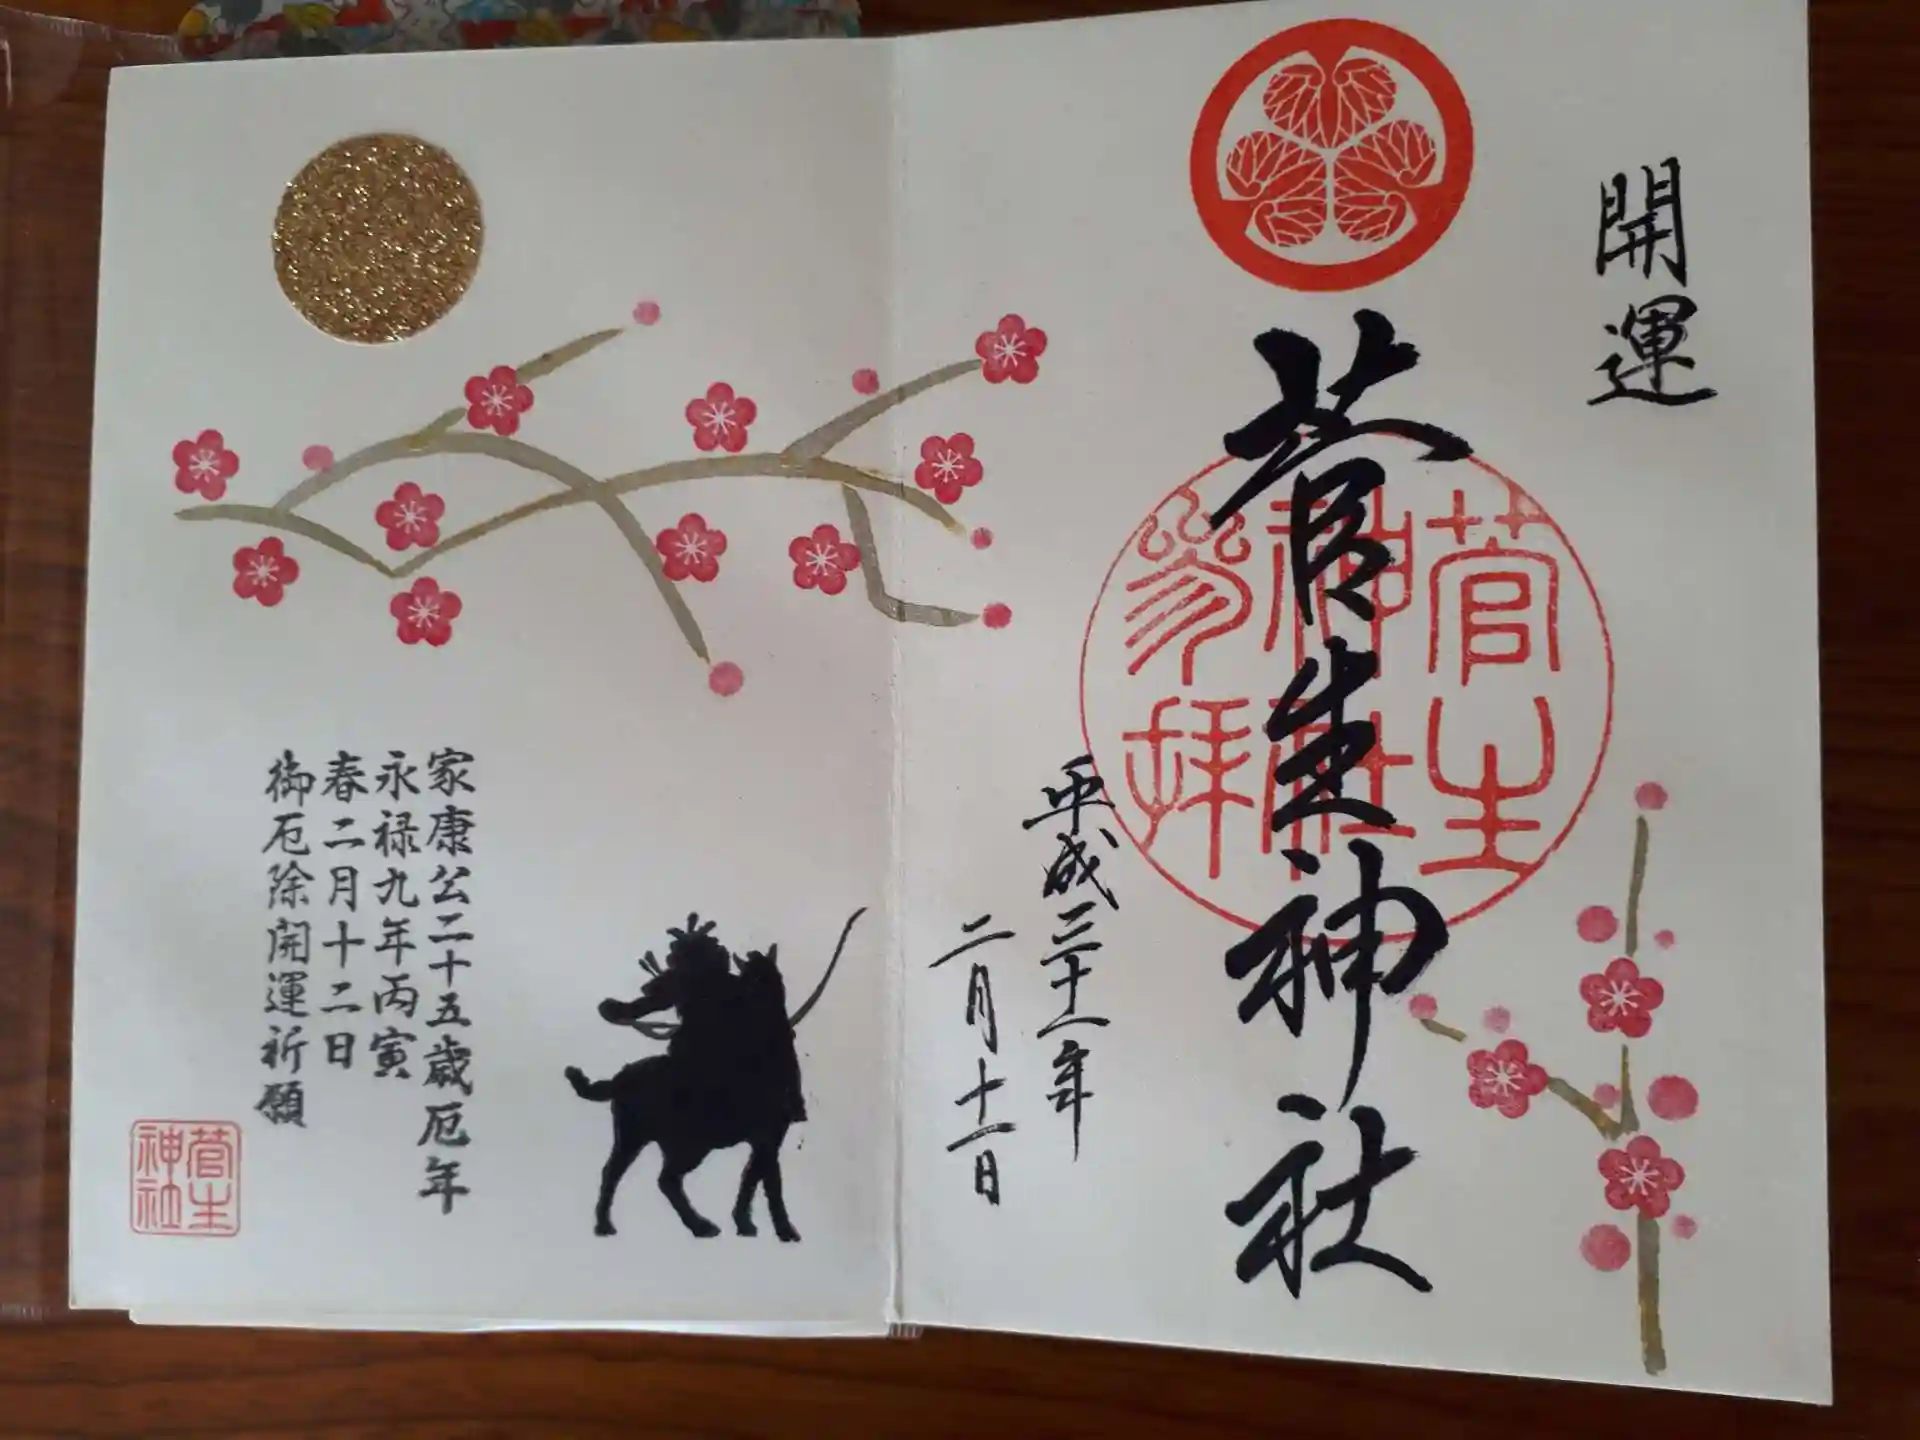 開運
菅生神社
菅生
神社
参拝
平成三十一年
二月十一日
家康公二十五歳厄年
永禄九年丙寅
春二月十二日
御厄除開運祈願
菅生
神社